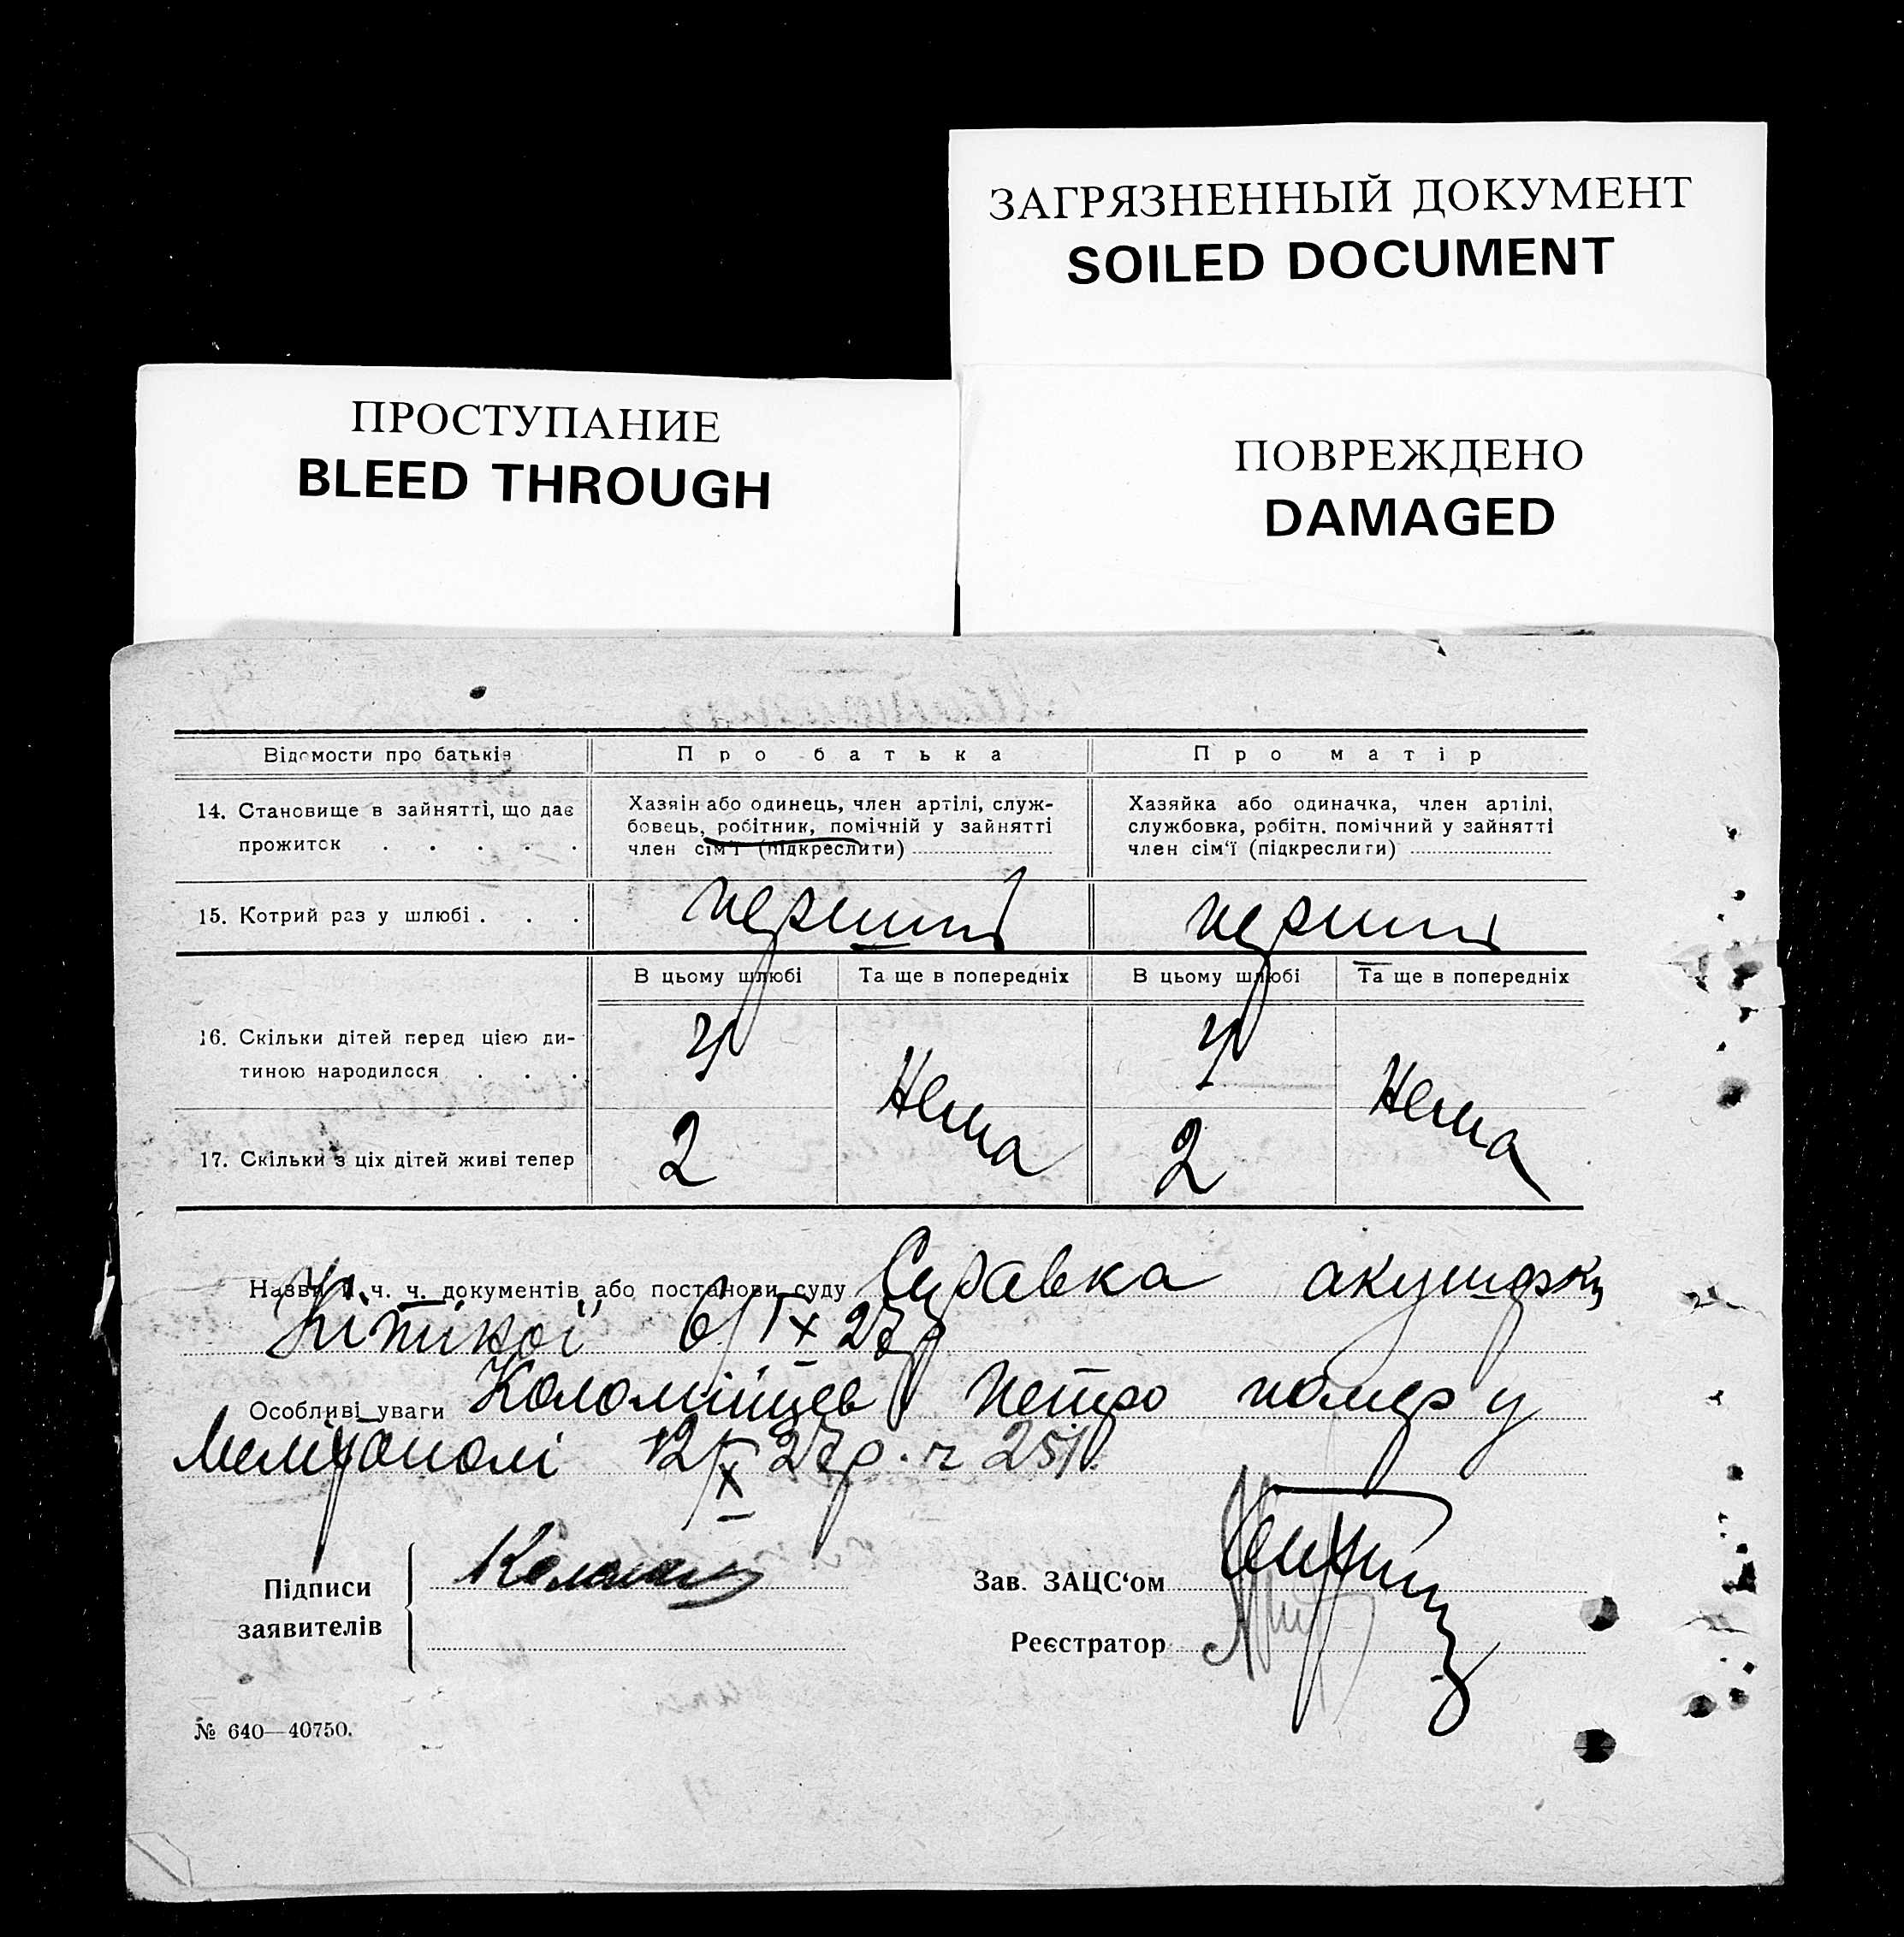 ЗАГРЯЗНЕННЫЙ ДОКУМЕНТ
SOILED DOCUMENT
ПРОСТУПАНИЕ
BLEED THROUGH
ПОВРЕЖДЕНО
DAMAGED
Відомости про батьків
Про батька
Про матір
14. Становище в зайнятті, що дає
прожиток . . . . .
Хазяін або одинець, член артілі, служ-
бовець, робітник, помічній у зайнятті
член сім'ї (підкреслити)
Хазяйка або одиначка, член артілі,
службовка, робітн. помічний у зайнятті
член сім'ї (підкреслити)
15. Котрий раз у шлюбі . . .
перший
перший
В цьому шлюбі
Та ще в попередніх
В цьому шлюбі
Та ще в попередніх
16. Скільки дітей перед цією ди-
тиною народилося . . .
4
Нема
4
Нема
17. Скільки з ціх дітей живі тепер
2
2
Назви й ч. ч. документів або постанови суду Справка акушерки
6/IX 27р
Особливі уваги Коломійцев Петро помер у
Мелітополі 12/X 27р. ч 251
Підписи
заявителів
Зав. ЗАЦС'ом
Реєстратор
№ 640—40750.